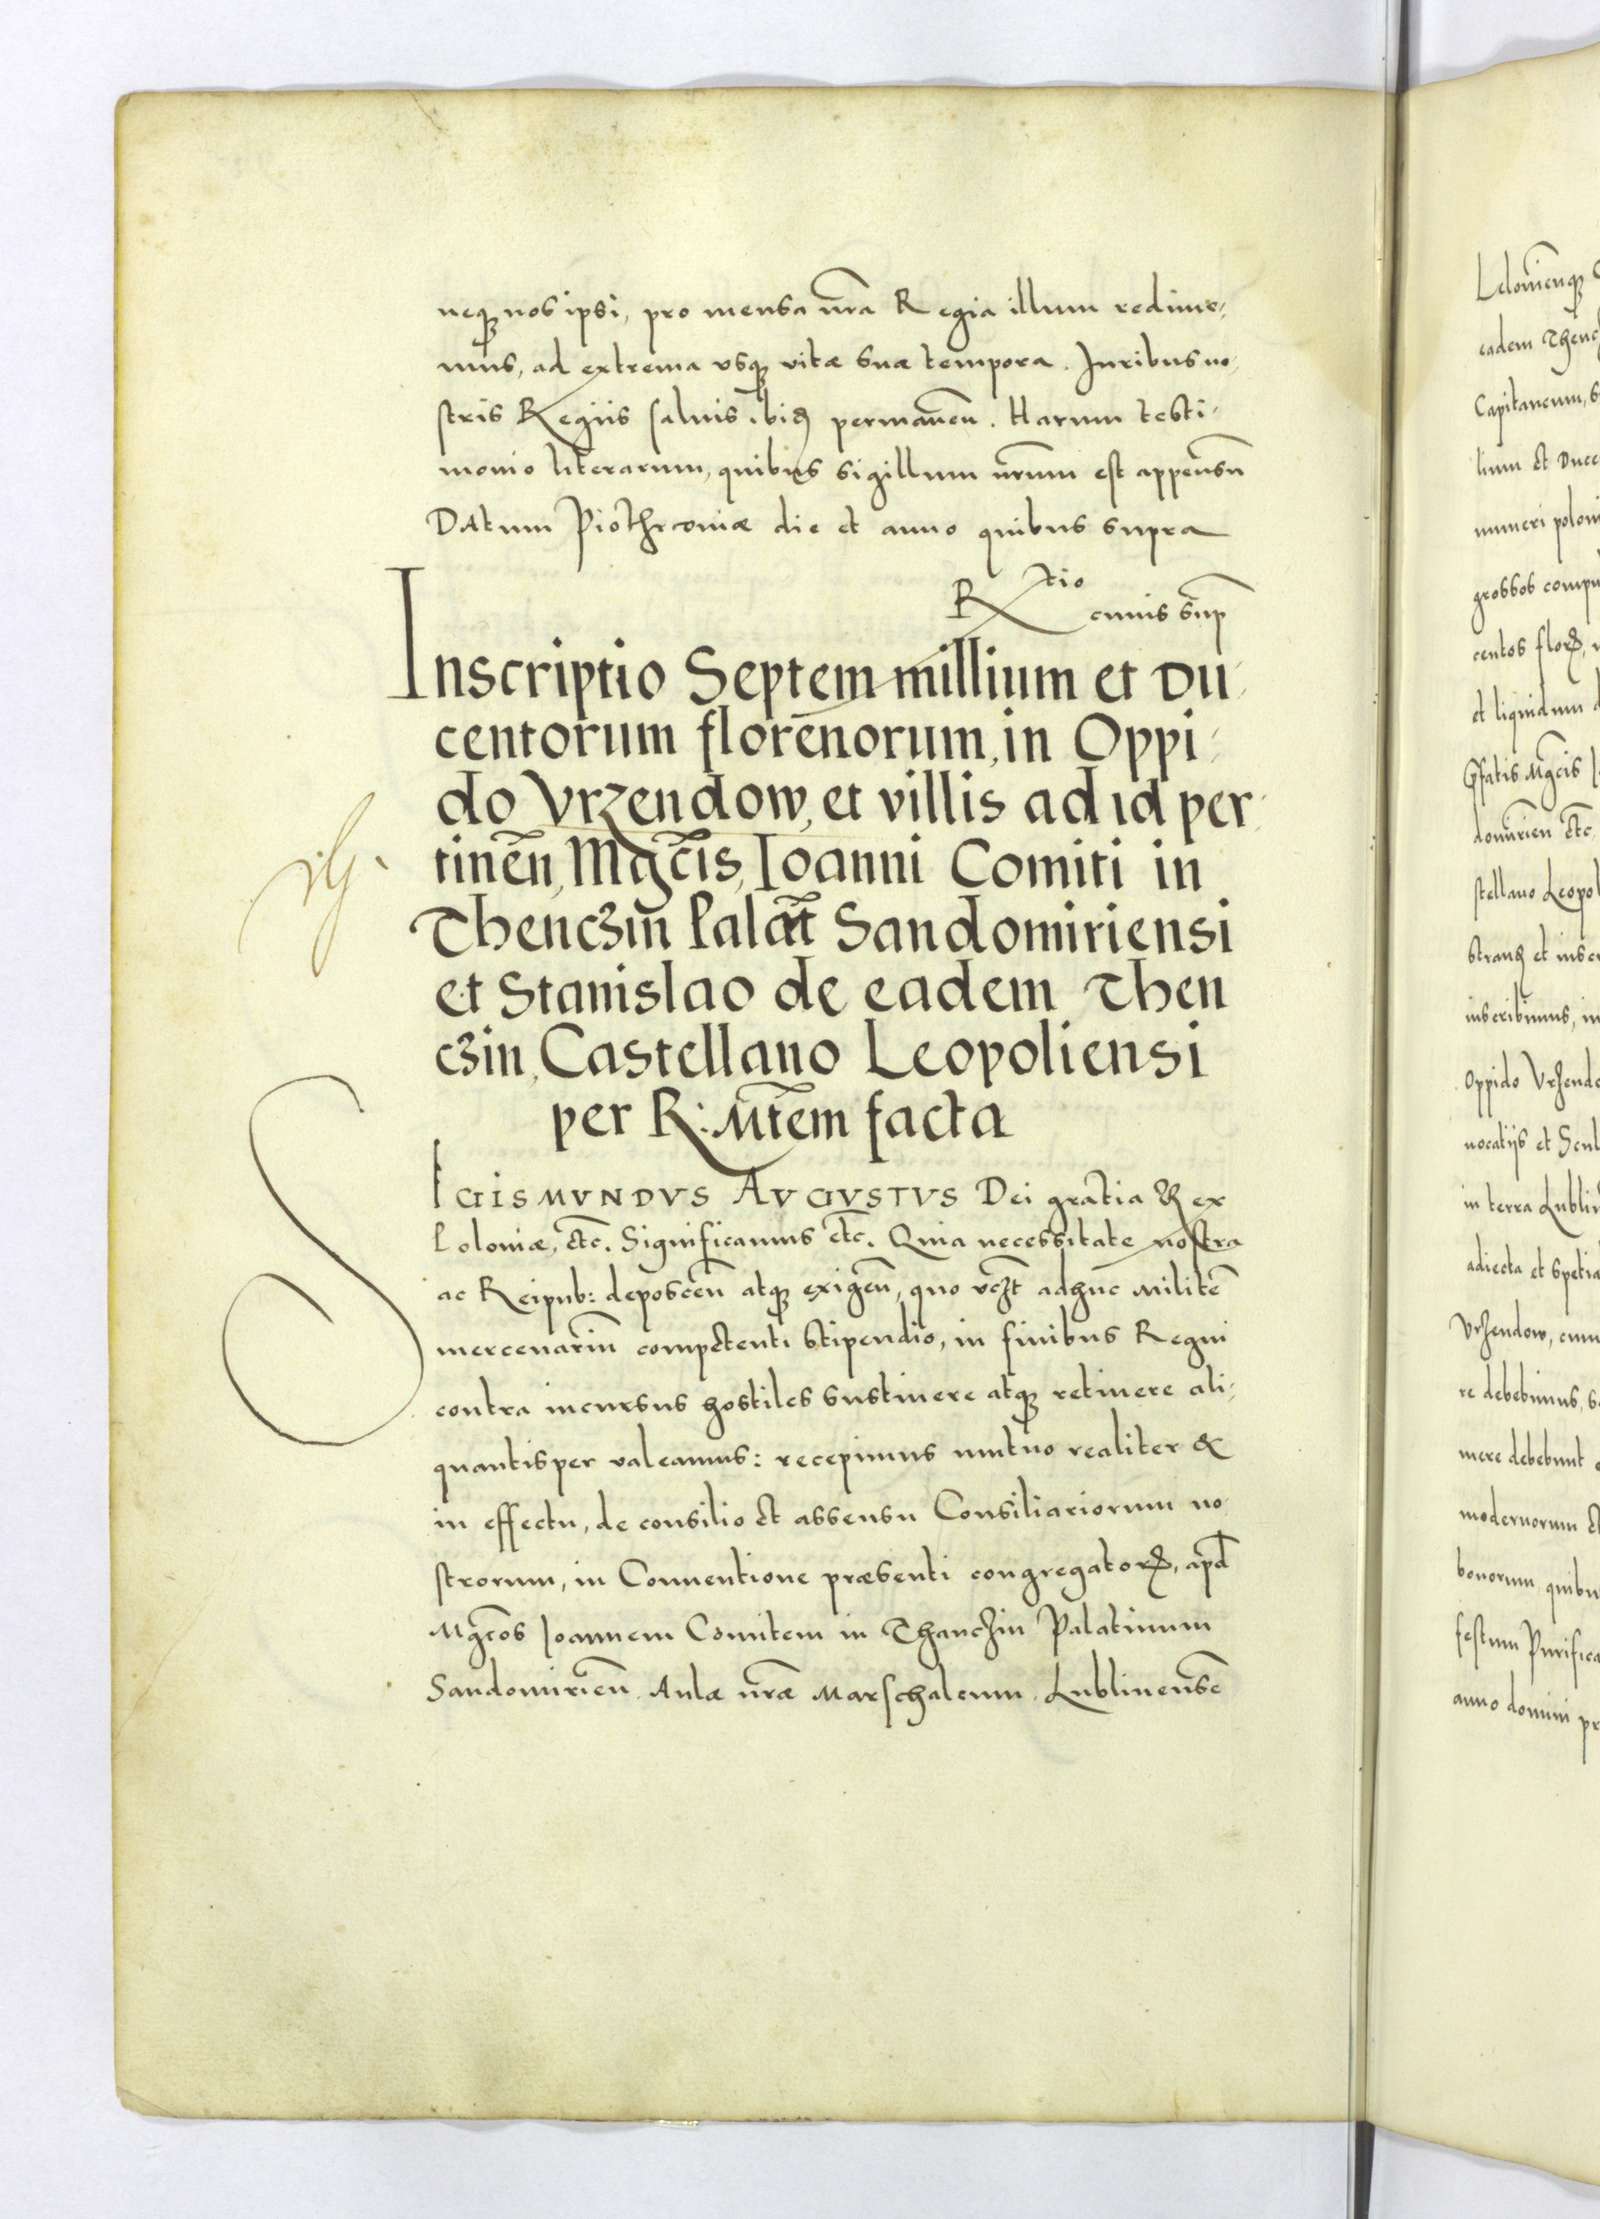 neq₃ nos ipsi, pro mensa nr̃a Regia illum redime-
mus, ad extrema usq₃ vitæ suæ tempora. Iuribus no-
stris Regiis salvis ibid₃ permanen̄. Harum testi-
monio literarum, quibus sigillum nr̃um est appensū
DAtum Piothrcoviæ die et anno quibus supra
R tio
cuius sup̃
Inscriptio Septem millium et Du-
centorum florenorum, in Oppi-
do Vrzendow, et villis ad id per-
tinen̄, Mgcīs, Ioanni Comiti in
Thenczin Palat̄ Sandomiriensi
et Stanislao de eadem Then
czin, Castellano Leopoliensi
per R: Mtēm facta
SIGISMVNDVS AVGVSTVS Dei gratia Rex
Poloniæ, etc̄. Significamus etc̄. Quia necessitate nostra
ac Reipub: deposcen̄ atq₃ exigen̄, quo vcz̄t adhuc Militē
mercenariū competenti stipendio, in finibus Regni
contra incursus hostiles sustinere atq₃ retinere ali-
quantisper valeamus: recepimus mutuo realiter &
in effectu, de consilio et assensu Consiliariorum no
strorum, in Conventione præsenti congregatorꝝ, apd̄
Mgcōs Ioannem Comitem in Thanczin Palatinum
Sandomirien̄. Aulæ nr̃æ Marschalcum. Lublinensē
Lelovienq₃
eadem Thencz
Capitaneum, s
lium et Duce
numeri poloni
grossos compu
centos florꝝ,
et liquidum d
Mgcīs
domirien̄ etc̄
stellano Leopol
et inscr
inscribimus, in
Oppido Vrzendo
vocatiis et Scul
in terra Lublin
adiecta et spetia
Vrzendow, cum
re debebimus, s
mere debebunt
modernorum et
bonorum, quibu
festum Purifica
anno domini pr